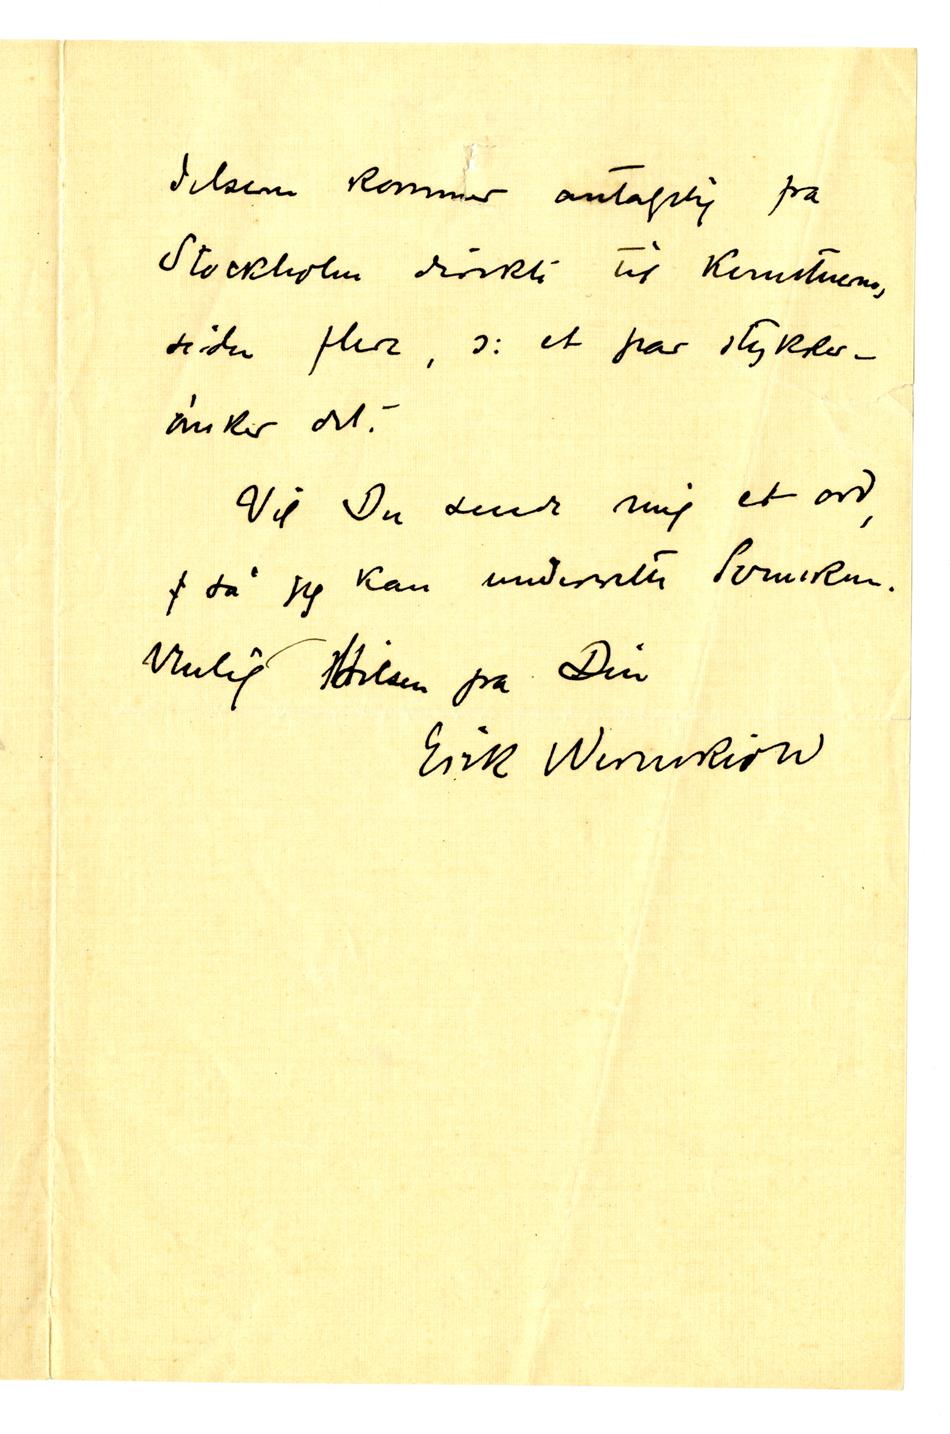 delsene kommer antagelig fra
Stockholm direkte til Kunstnerne,
siden flere, ɔ: et par stykker
ønsker det.
Vil Du sende mig et ord,
så jeg kan underrette Svensken.
Venlig Hilsen fra Din
Erik Werenskiold